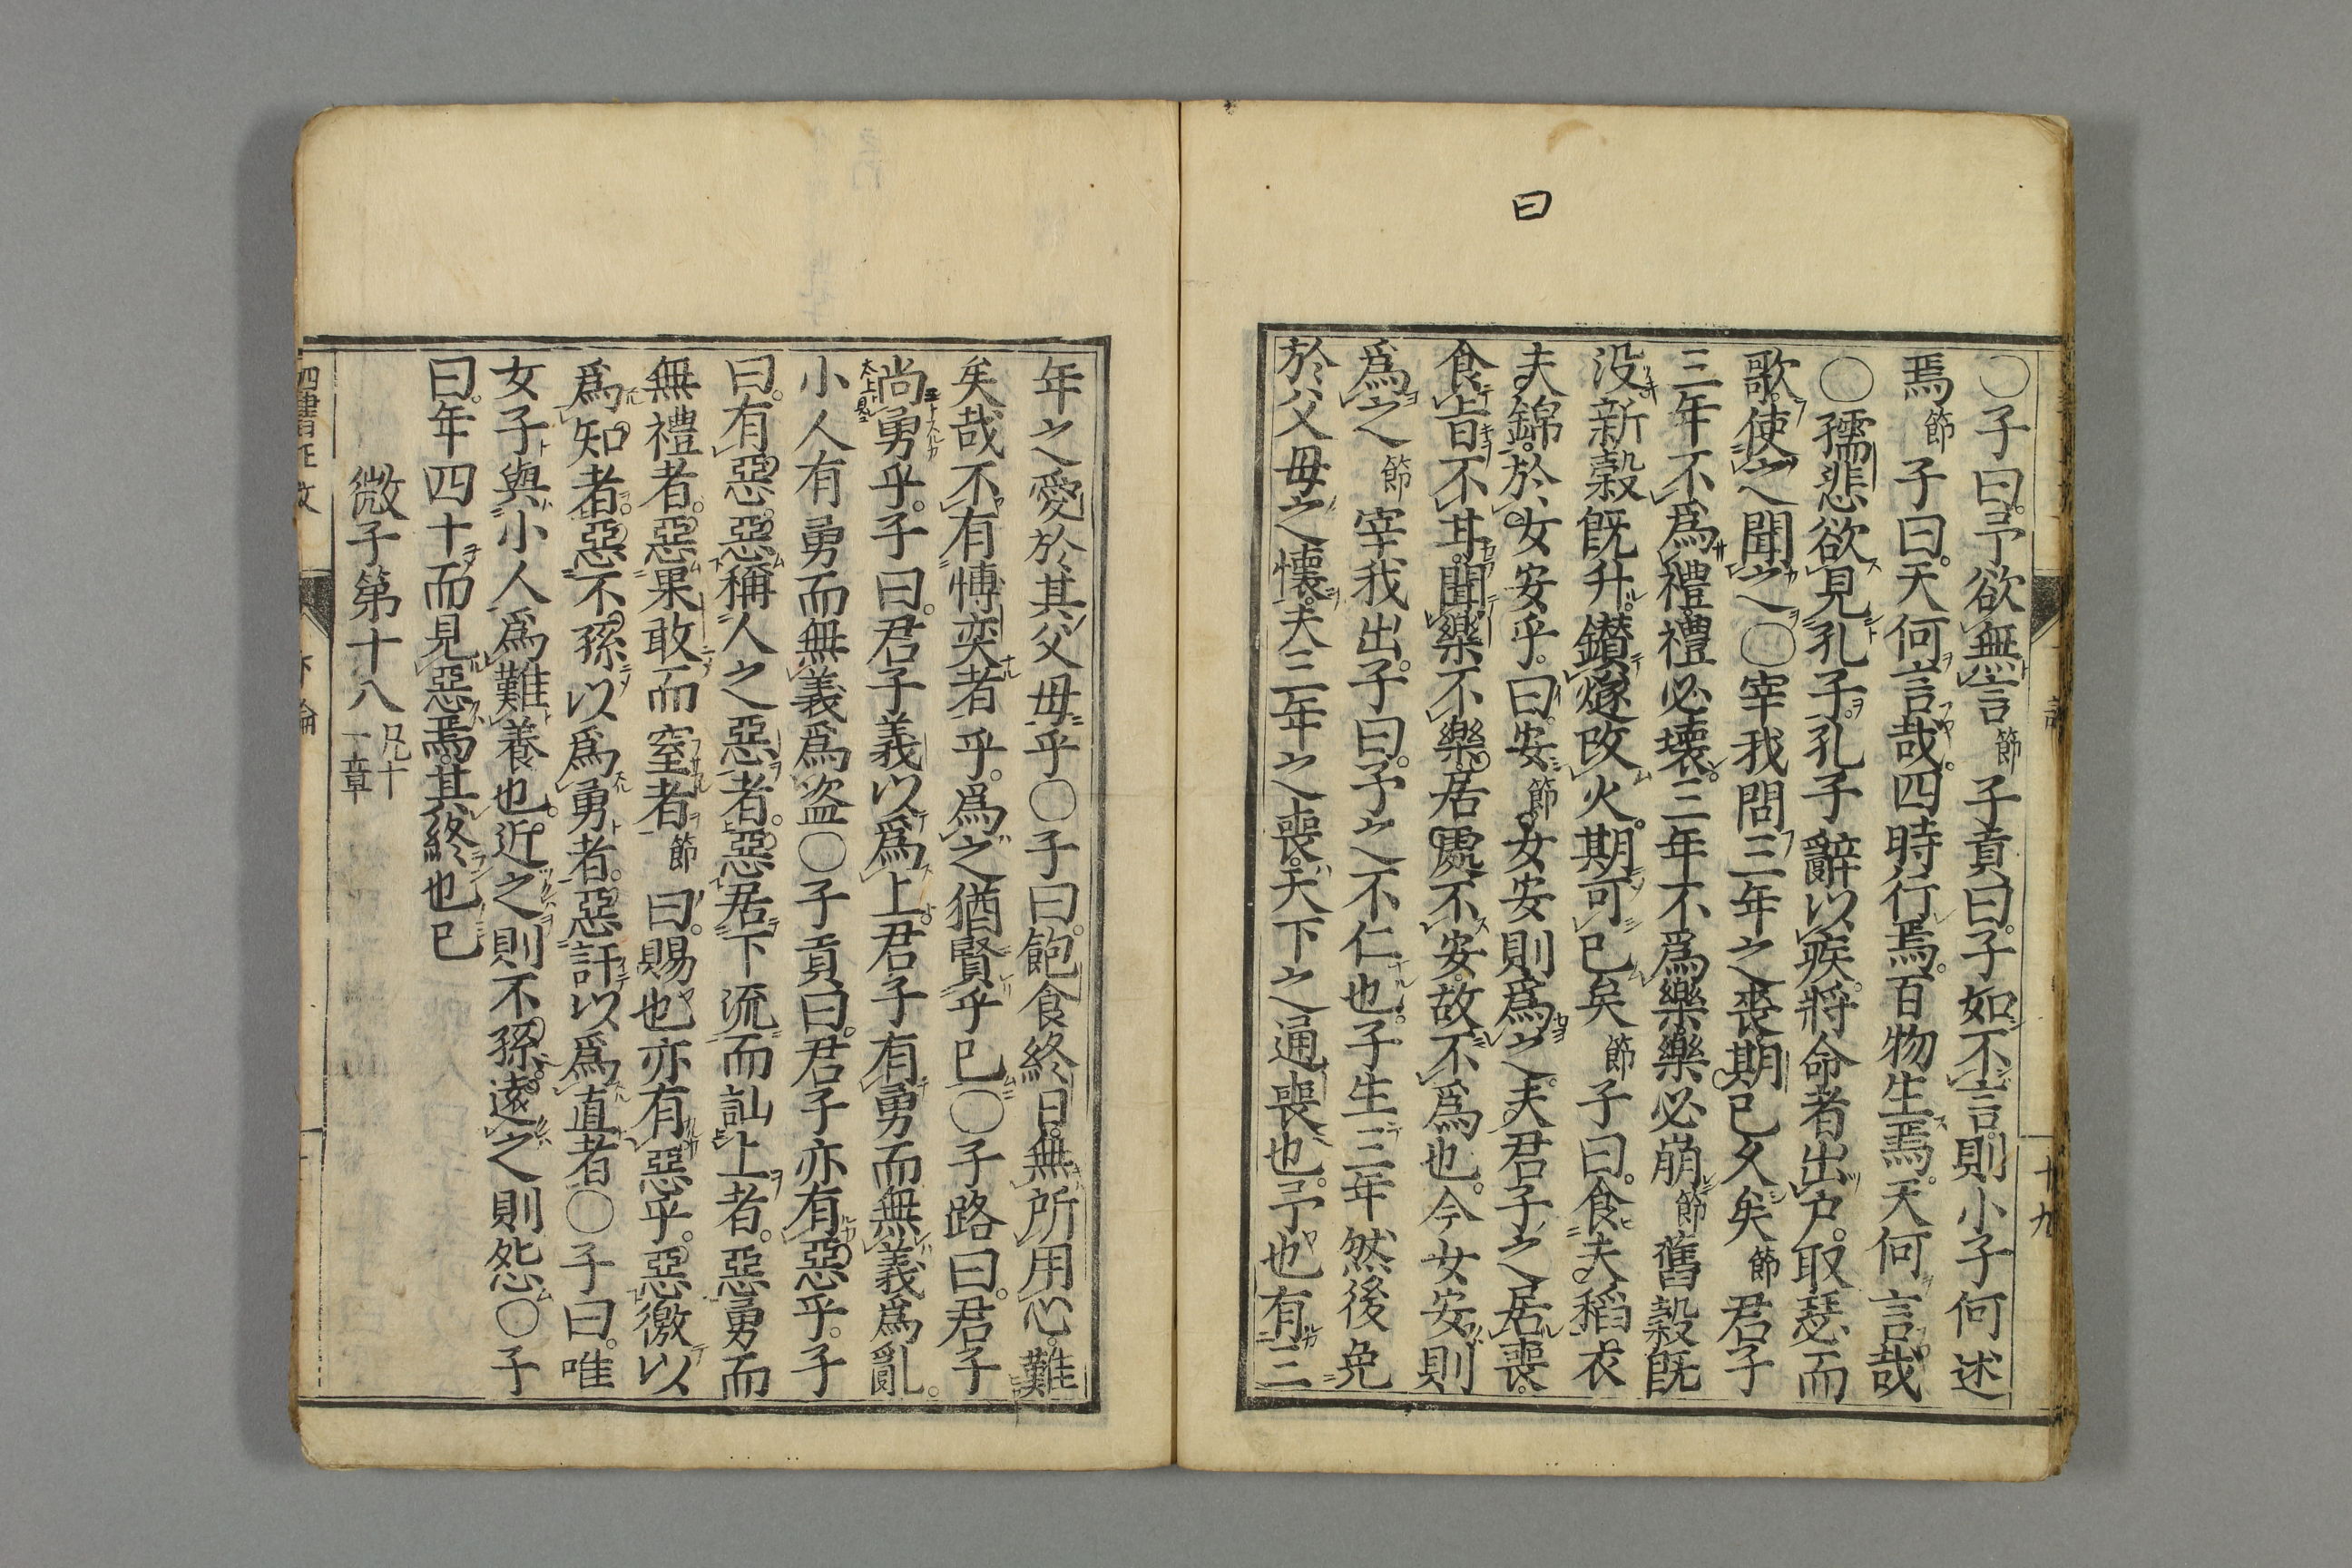 曰
〇子曰予欲無言節子貢曰子如不言則小子何述
焉節子曰天何言哉四時行焉百物生焉天何言哉
〇孺悲欲見孔子孔子辭以疾將命者出户取瑟而
歌使之聞之〇宰我問三年之喪期已久矣節君子
三年不爲禮禮必壞三年不爲樂樂必崩節舊穀既
没新穀既升鑚燧改火期可已矣節子曰食夫稻衣
夫錦於女安乎曰安節女安則爲之夫君子之居喪
食旨不甘聞樂不樂居處不安故不爲也今女安則
爲之節宰我出子曰予之不仁也子生三年然後免
於父母之懷夫三年之喪天下之通喪也予也有三
十九
年之愛於其父母乎〇子曰飽食終日無所用心難
矣哉不有博奕者乎爲之猶賢乎已〇子路曰君子
尚勇乎子曰君子義以爲上君子有勇而無義爲亂
小人有勇而無義爲盗〇子貢曰君子亦有惡乎子
曰有惡惡稱人之惡者惡居下流而訕上者惡勇而
無禮者惡果敢而窒者節曰賜也亦有惡乎惡徼以
爲知者惡不孫以爲勇者惡訐以爲直者〇子曰唯
女子與小人爲難養也近之則不孫遠之則怨〇子
曰年四十而見惡焉其終也已
微子第十八凡十一章